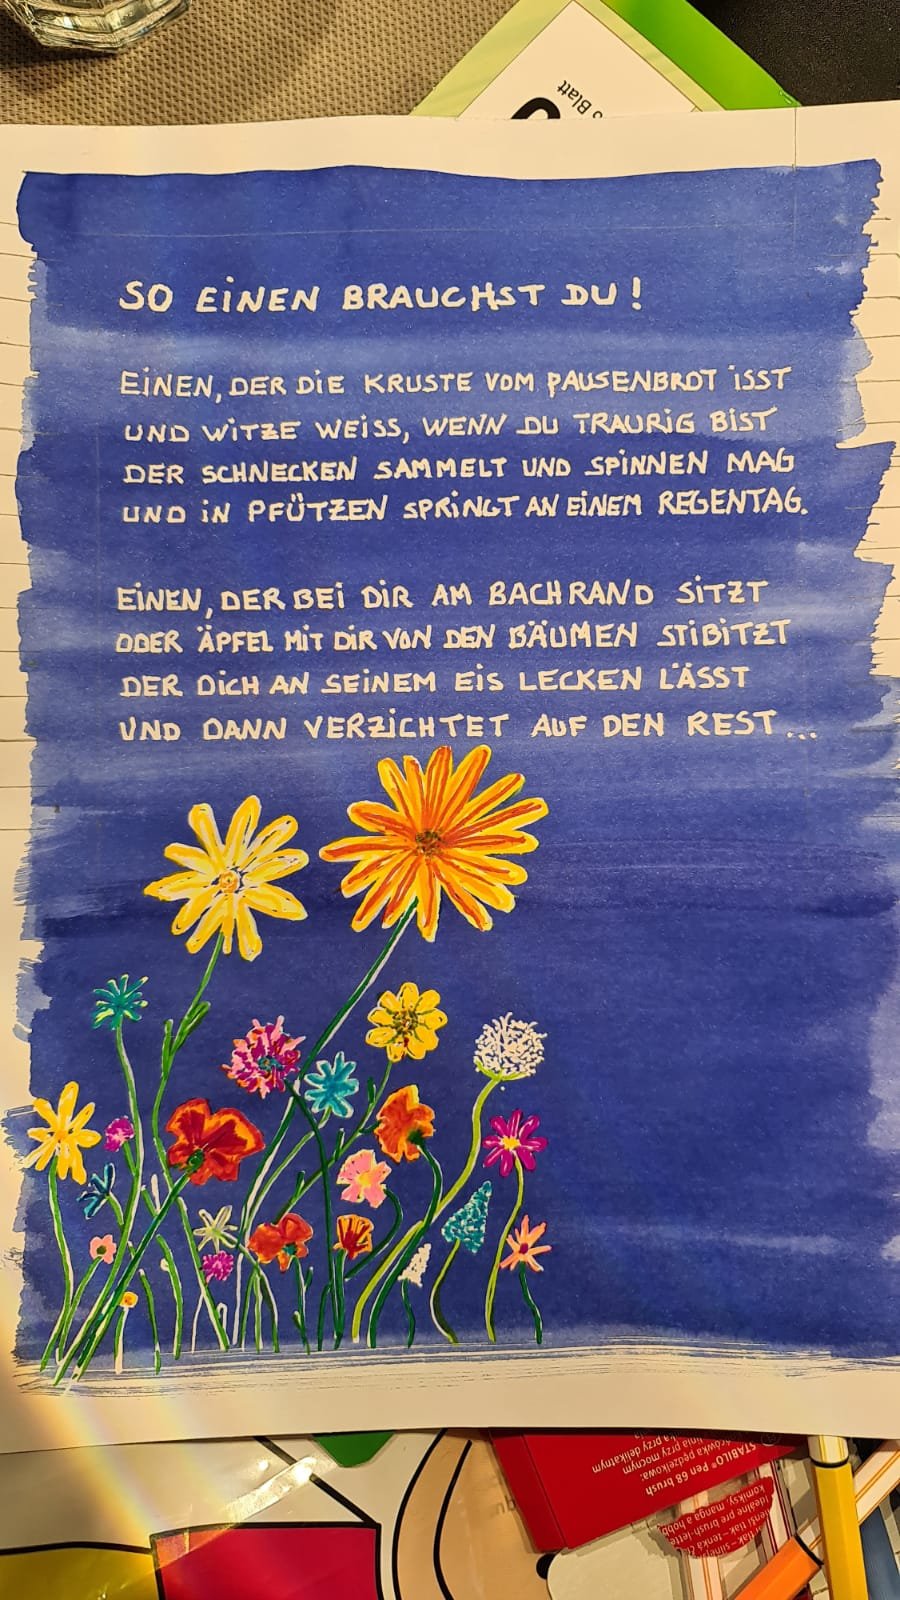 5 Blatt
SO EINEN BRAUCHST DU!
EINEN, DER DIE KRUSTE VOM PAUSENBROT ISST
UND WITZE WEISS, WENN DU TRAURIG BIST
DER SCHNECKEN SAMMELT UND SPINNEN MAG
UND IN PFÜTZEN SPRINGT AN EINEM REGENTAG.
EINEN, DER BEI DIR AM BACHRAND SITZT
ODER ÄPFEL MIT DIR VON DEN BÄUMEN STIBITZT
DER DICH AN SEINEM EIS LECKEN LÄSST
UND DANN VERZICHTET AUF DEN REST...
STABILO® Pen 68 brush
pędzelkowa:
przy mocnym
przy delikatnym
tlak – tenká
ideálne pre brush-lette
komiksy, manga a hobb